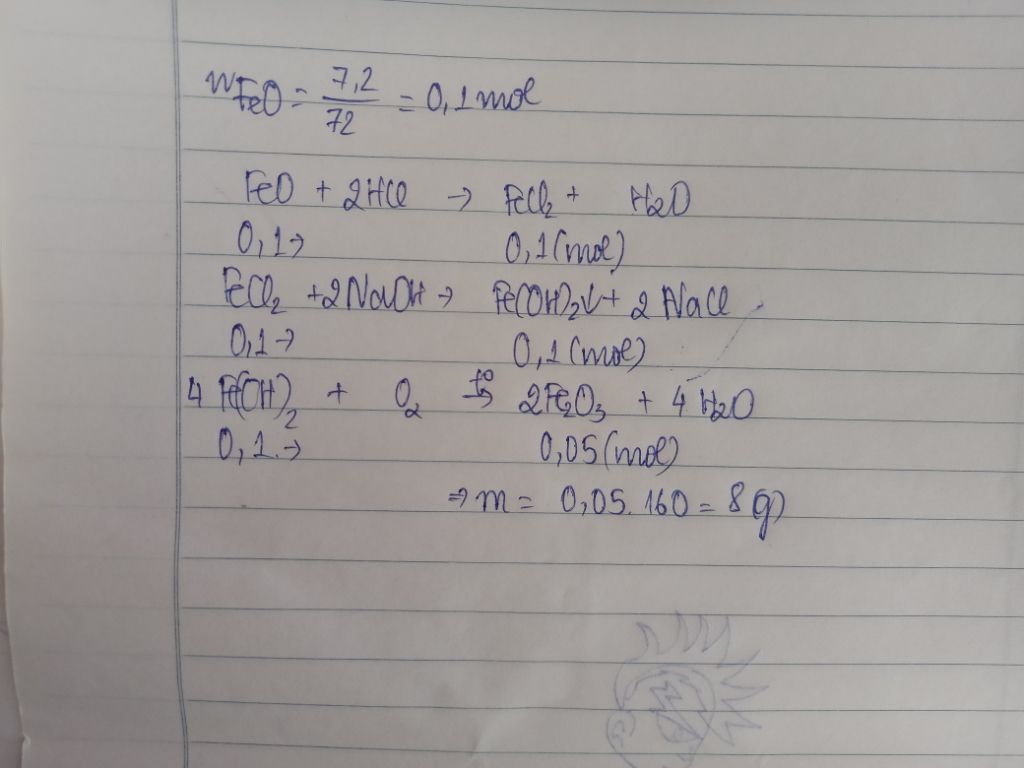 nFeO = 7,2/72 = 0,1 mol
FeO + 2HCl → FeCl2 + H2O
0,1→ 0,1 (mol)
FeCl2 + 2NaOH → Fe(OH)2↓ + 2 NaCl
0,1→ 0,1 (mol)
4 Fe(OH)2 + O2 t°→ 2Fe2O3 + 4 H2O
0,1.→ 0,05 (mol)
⇒ m = 0,05. 160 = 8 g)